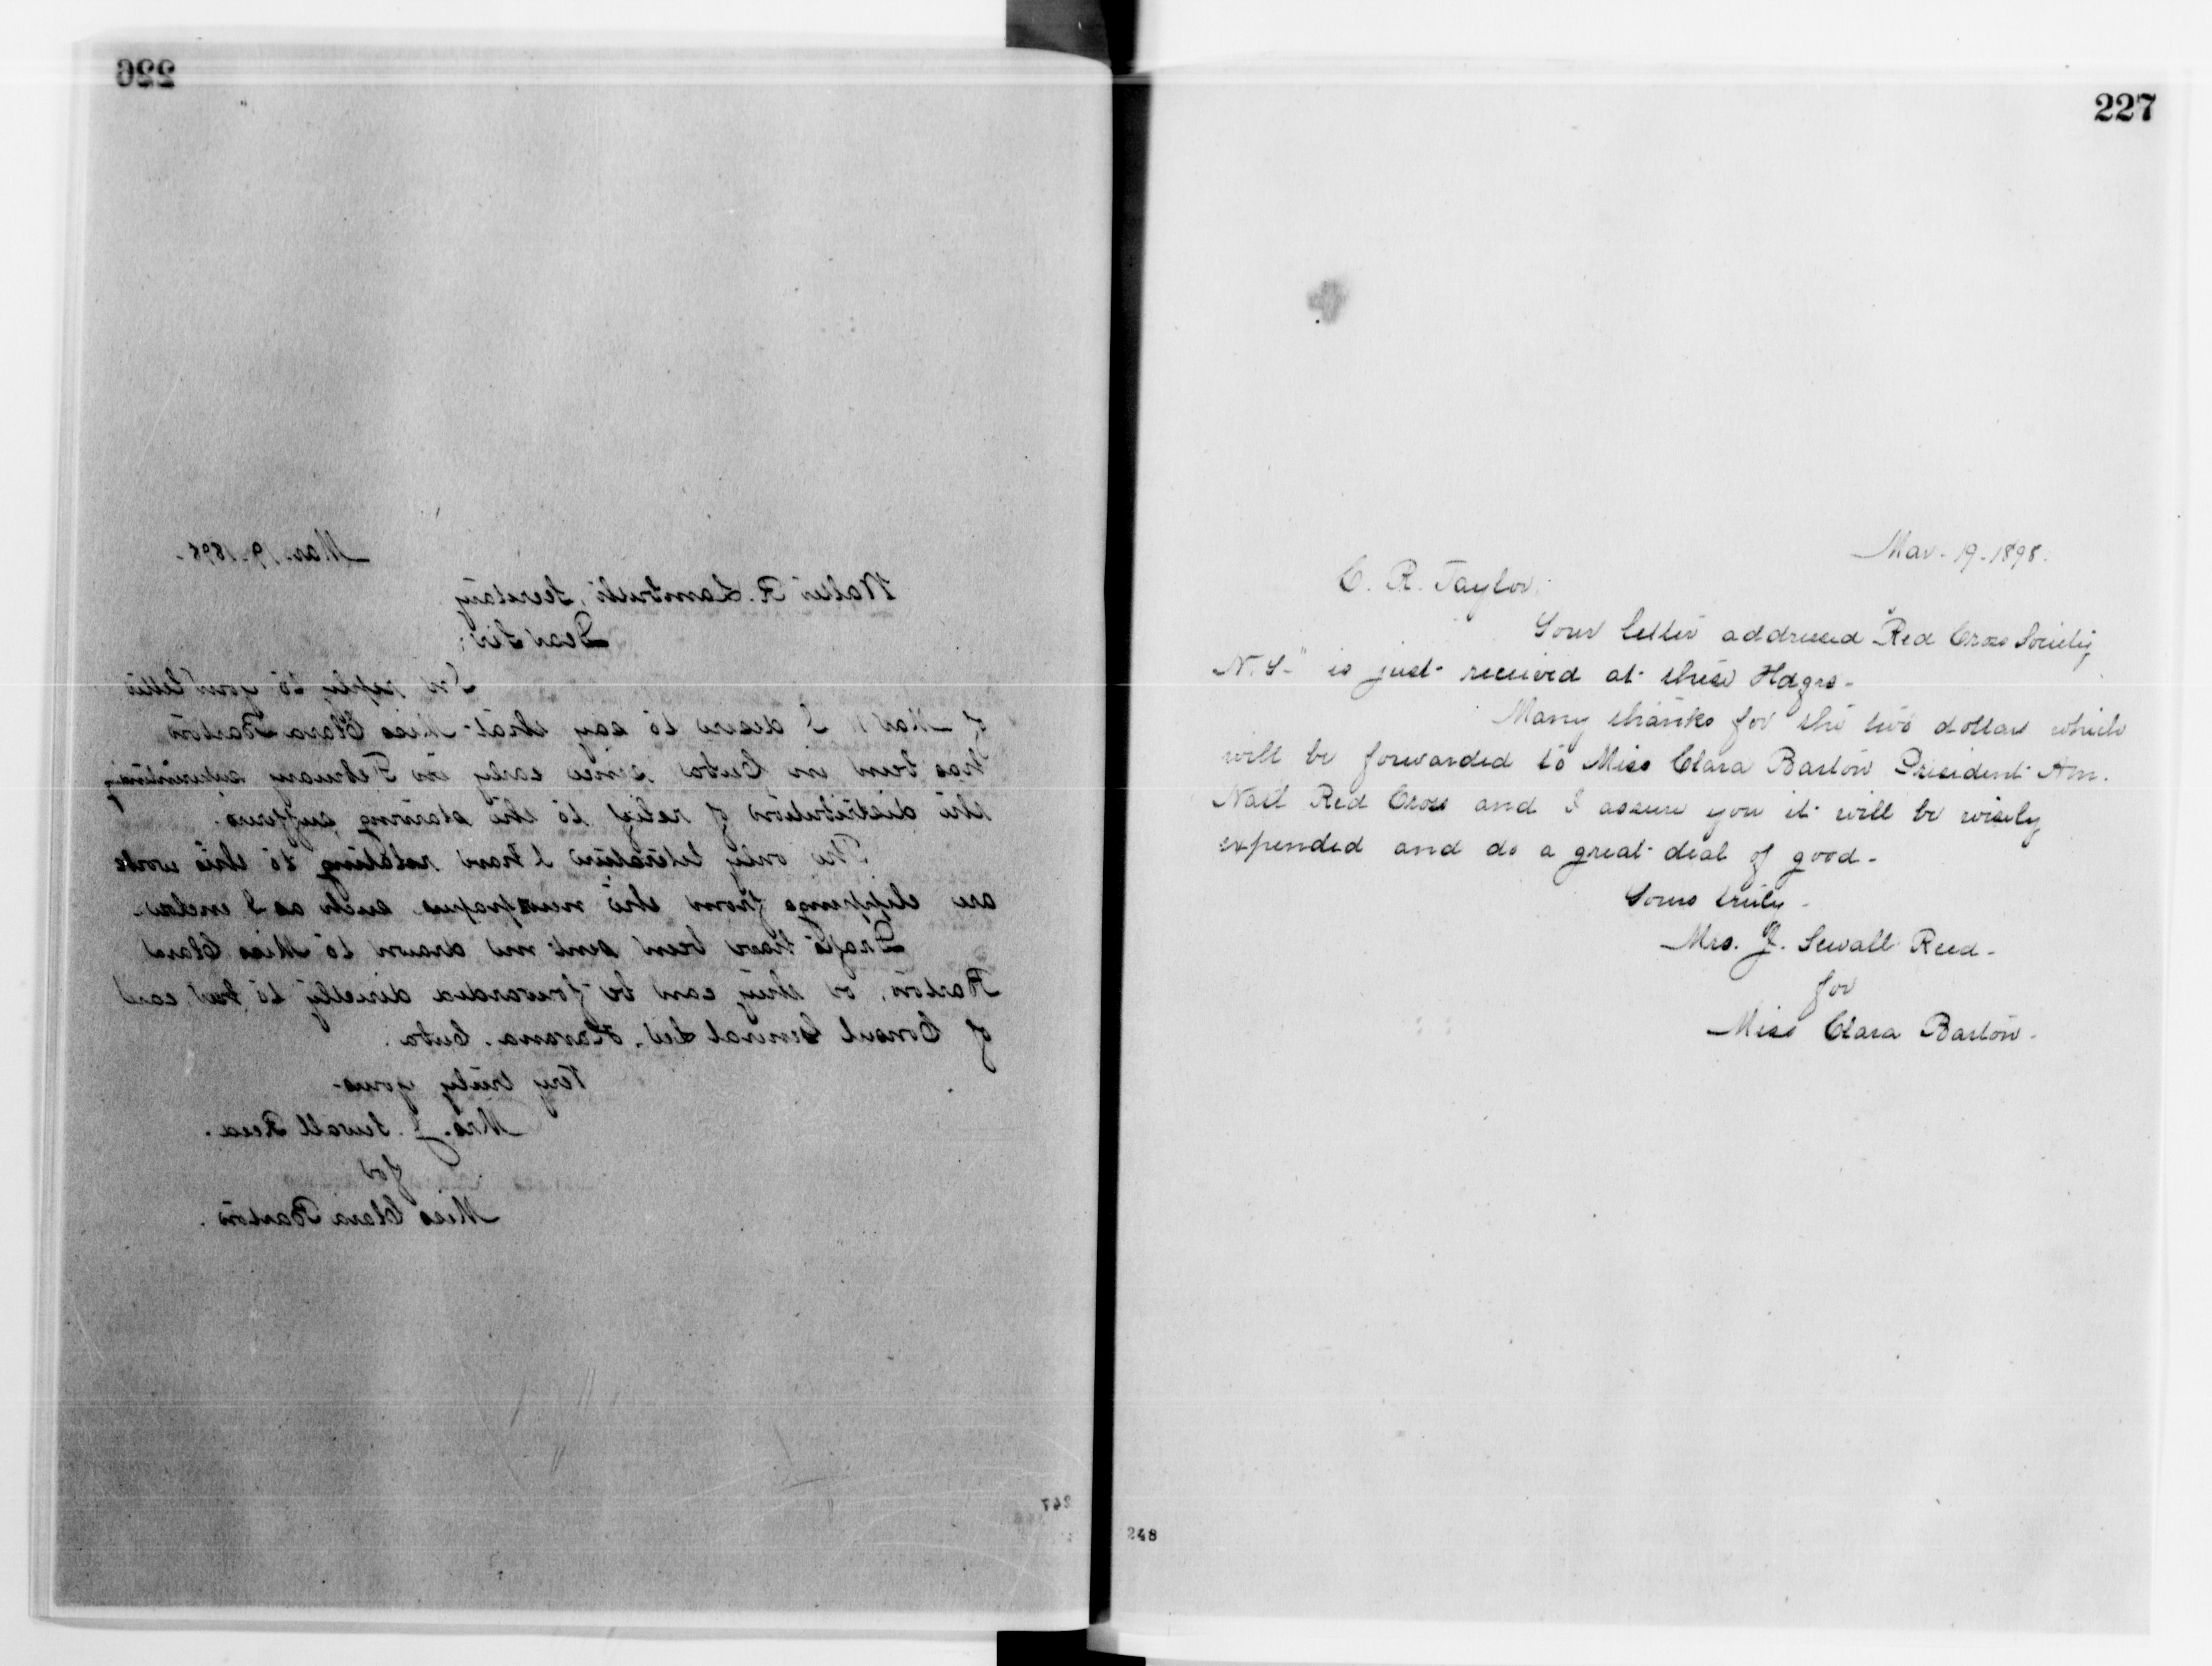 226
Mar. 19. 1898.
Walter R. Lambuth, Secretary
Dear Sir;
In reply to your letter
of Mar 11 I desire to say that Miss Clara Barton
has been in Cuba since early in February superintending
the distribution of relief to the starving sufferers.
The only literature I have relating to this work
are clippings from the newspapers such as I enclose.
Drafts have been sent me drawn to Miss Clara
Barton, or they can be forwarded directly to her care
of Consul General Lee, Havana, Cuba.
Very truly yours-
Mrs. J. Sewall Reed.
for
Miss Clara Barton.
247
227
Mar. 19. 1898.
C. R. Taylor:
Your letter addressed "Red Cross Society
N. Y-" is just received at these Hdqrs-
Many thanks for the two dollars which
will be forwarded to Miss Clara Barton President Am.
Natl Red Cross and I assure you it will be wisely
expended and do a great deal of good-
Yours truly-
Mrs. J. Sewall Reed-
for
Miss Clara Barton-
248